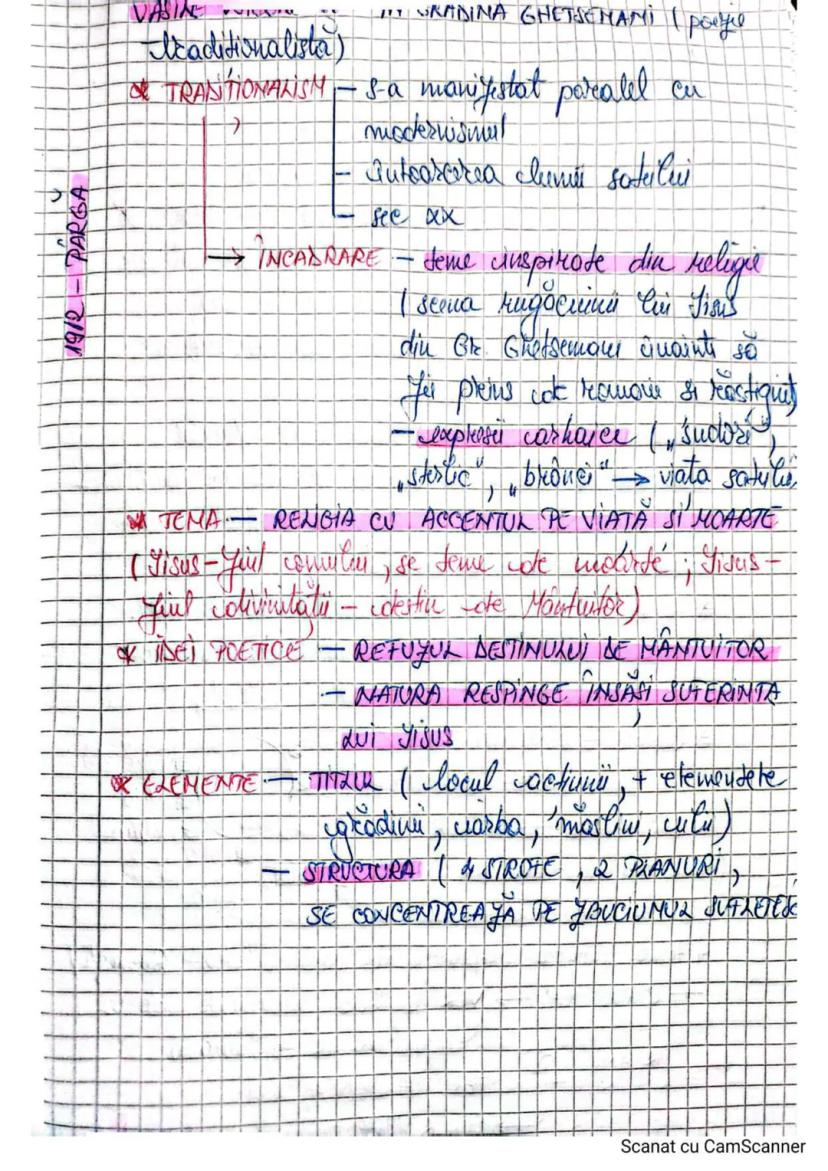 VASILE IN GRĂDINA GHETSEMANI (poezie
tradiționalistă)
* TRADIȚIONALISM — s-a manifestat paralel cu
modernismul
— întoarcerea lumii satului
— sec XX
1912 - PÂRGĂ
→ ÎNCADRARE — teme inspirate din religie
(scena rugăciunii lui Iisus
din Gr. Ghetsemani înainte să
fie prins de romani și răstignit)
— expresii arhaice („sudori”,
„sterlic”, „brânci” → viața satului,
* TEMA — RELIGIA CU ACCENTUL PE VIAȚĂ ȘI MOARTE
(Iisus - fiul omului, se teme de moarte; Iisus -
fiul divinității - destin de Mântuitor)
* IDEI POETICE — REFUZUL DESTINULUI DE MÂNTUITOR
— NATURA RESPINGE ÎNSĂȘI SUFERINȚA
LUI IISUS
* ELEMENTE — TITLUL (locul acțiunii, + elementele
grădinii, iarba, măslin, uliu)
— STRUCTURA (4 STROFE, 2 PLANURI,
SE CONCENTREAZĂ PE ZBUCIUMUL SUFLETESC
Scanat cu CamScanner